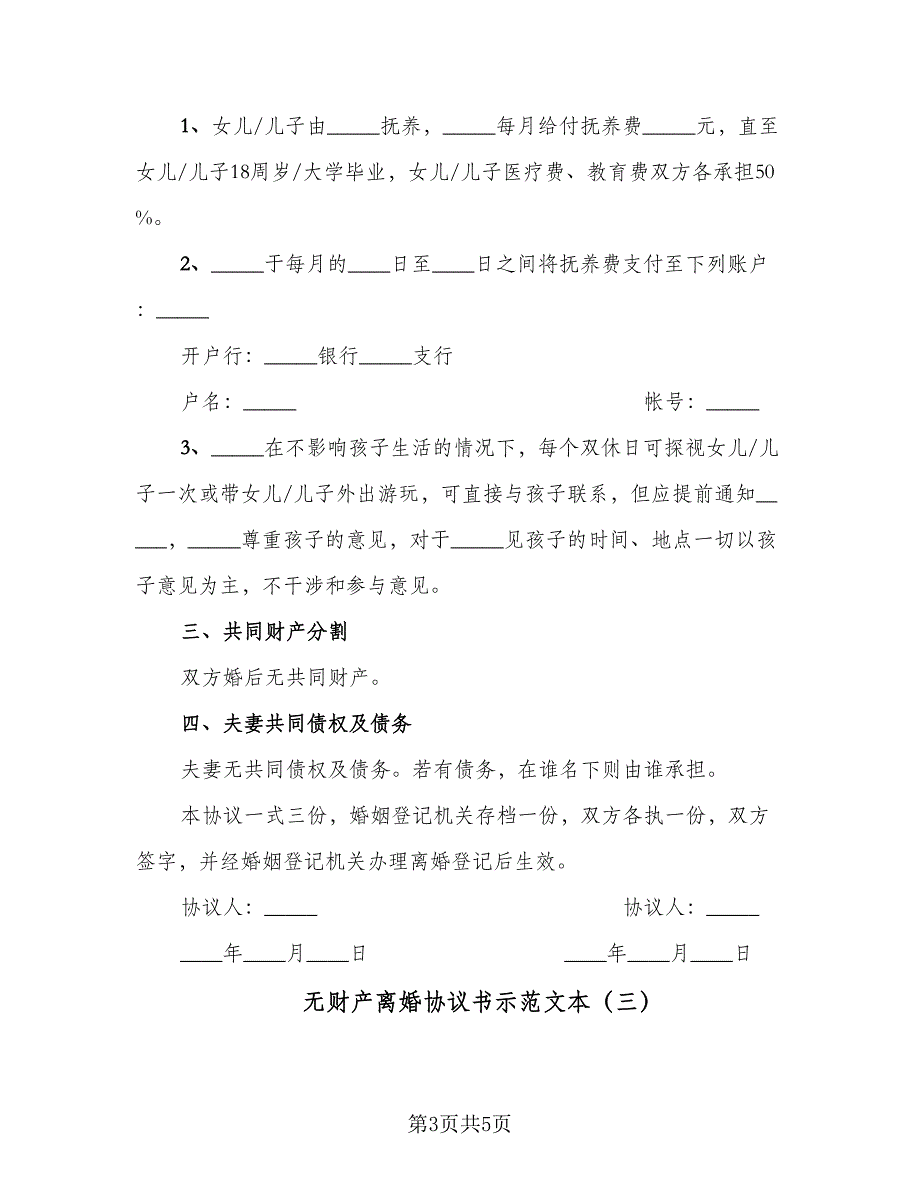 1、女儿/儿子由_____抚养，_____每月给付抚养费_____元，直至
女儿/儿子18周岁/大学毕业，女儿/儿子医疗费、教育费双方各承担50
%。
2、_____于每月的____日至____日之间将抚养费支付至下列账户
：_____
开户行：_____银行_____支行
户名：_____ 帐号：_____
3、_____在不影响孩子生活的情况下，每个双休日可探视女儿/儿
子一次或带女儿/儿子外出游玩，可直接与孩子联系，但应提前通知__
___，_____尊重孩子的意见，对于_____见孩子的时间、地点一切以孩
子意见为主，不干涉和参与意见。
三、共同财产分割
双方婚后无共同财产。
四、夫妻共同债权及债务
夫妻无共同债权及债务。若有债务，在谁名下则由谁承担。
本协议一式三份，婚姻登记机关存档一份，双方各执一份，双方
签字，并经婚姻登记机关办理离婚登记后生效。
协议人：_____ 协议人：_____
____年____月____日 ____年____月____日
无财产离婚协议书示范文本（三）
第3页共5页